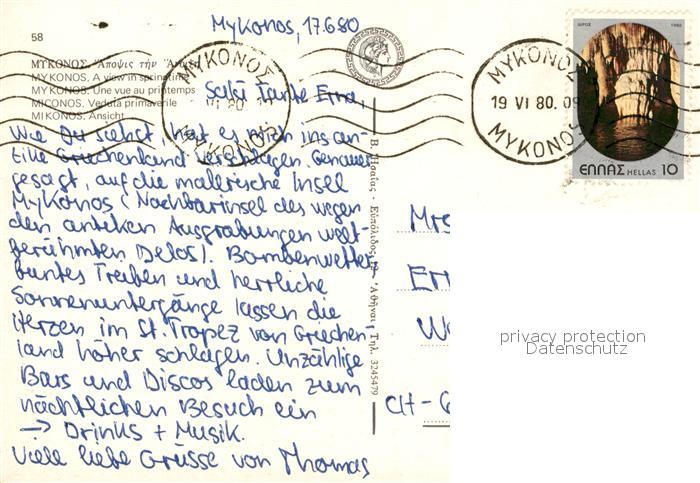 Mykonos, 17.6.80
58
ΜΥΚΟΝΟΣ. Ἄποψις τὴν Ἄνοιξι
MYKONOS. A view in springtime
MYKONOS. Une vue au printemps
MICONOS. Veduta primaverile
MIKONOS. Ansicht
ΜΥΚΟΝΟΣ
VI 80
MYKONOS
ΜΥΚΟΝΟΣ
19 VI 80. 09
MYKONOS
1980
ΕΛΛΑΣ HELLAS 10
Salü Tante Erna,
Wie Du siehst, hat es mich ins an-
tike Griechenland verschlagen. Genauer
gesagt, auf die malerische Insel
Mykonos (Nachbarinsel des wegen
den antiken Ausgrabungen welt-
berühmten Delos). Bombenwetter,
buntes Treiben und herrliche
Sonnenuntergänge lassen die
Herzen im St. Tropez von Griechen-
land höher schlagen. Unzählige
Bars und Discos laden zum
nächtlichen Besuch ein
→ Drinks + Musik.
Viele liebe Grüsse von Thomas
Εὐπόλιδος
Ἀθῆναι, Τηλ. 3245479
Mrs
CH-
privacy protection
Datenschutz